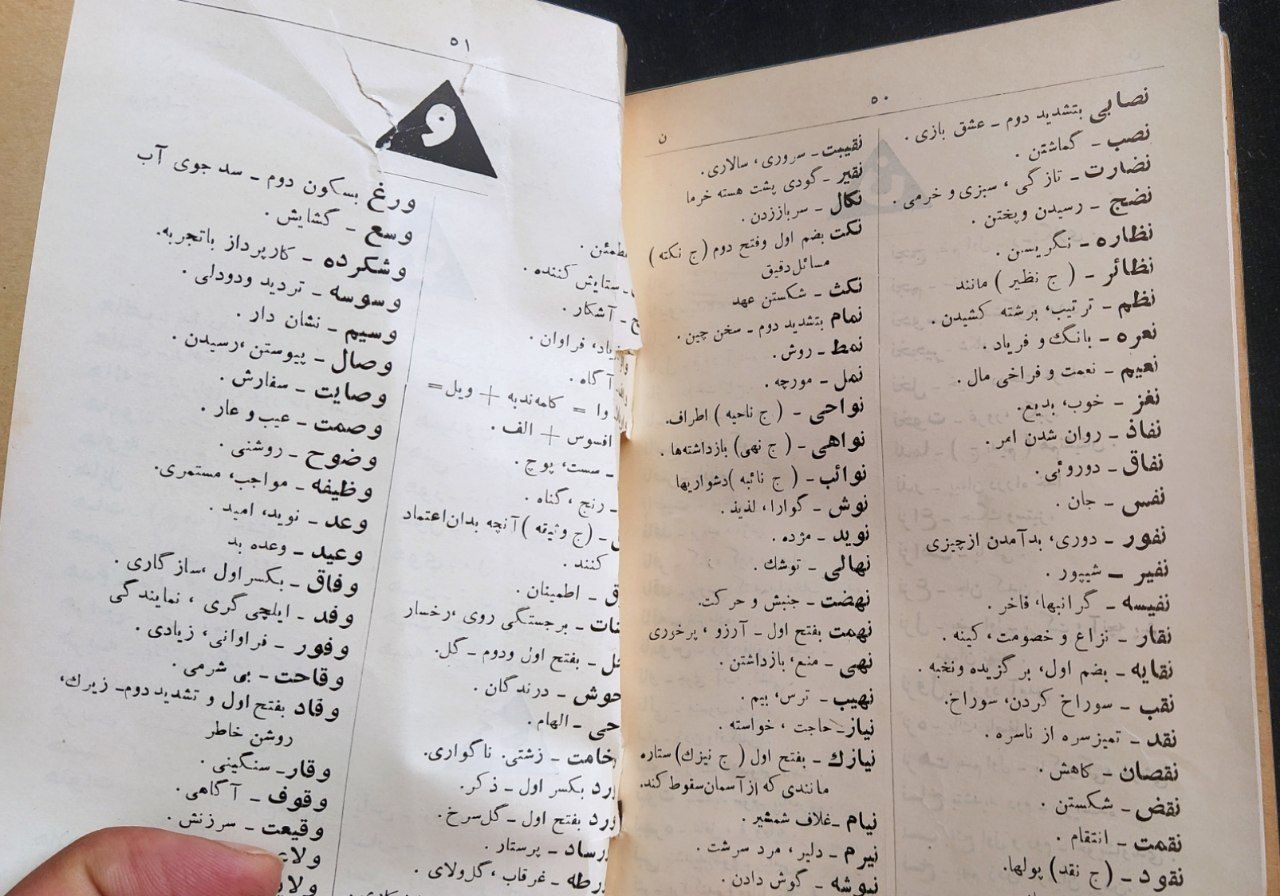 ۵۰
ن
نصابی بتشدید دوم - عشق بازی .
نصب - گماشتن .
نضارت - تازگی ، سبزی و خرمی .
نضج - رسیدن وپختن .
نظاره - نگریستن .
نظائر - ( ج نظیر ) مانند
نظم - ترتیب، برشته کشیدن .
نعره - بانگ و فریاد .
نعیم - نعمت و فراخی مال .
نغز - خوب، بدیع.
نفاذ - روان شدن امر .
نفاق - دوروئی .
نفس - جان .
نفور - دوری، بدآمدن ازچیزی
نفیر - شیپور .
نفیسه - گرانبها، فاخر .
نقار - نزاع و خصومت، کینه .
نقایه - بضم اول، برگزیده ونخبه
نقب - سوراخ کردن، سوراخ.
نقد - تمیزسره از ناسره .
نقصان - کاهش .
نقض - شکستن .
نقمت - انتقام .
نقود - ( ج نقد ) پولها.
نقیبت - سروری ، سالاری .
نقیر - گودی پشت هسته خرما
نکال - سرباززدن .
نکت بضم اول وفتح دوم ( ج نکته )
مسائل دقیق
نکث - شکستن عهد
نمام بتشدید دوم - سخن چین .
نمط - روش .
نمل - مورچه .
نواحی - ( ج ناحیه ) اطراف.
نواهی - ( ج نهی) بازداشته‌ها .
نوائب - ( ج نائبه )دشواریها
نوش - گوارا، لذیذ .
نوید - مژده .
نهالی - توشك .
نهضت - جنبش و حرکت.
نهمت بفتح اول - آرزو ، پرخوری
نهی - منع، بازداشتن .
نهیب - ترس، بیم .
نیاز - حاجت ، خواسته .
نیازك - بفتح اول ( ج نیزك) ستاره
مانندی که از آسمان سقوط کند.
نیام - غلاف شمشیر .
نیرم - دلیر ، مرد سرشت .
نیوشه - گوش دادن .
۵۱
و
ستایش کننده .
آشکار .
فراوان .
آگاه .
وا = کامه‌ندبه + ویل=
افسوس + الف .
سست، پوچ .
رنج ، گناه .
( ج وثیقه ) آنچه بدان‌اعتماد
کنند .
اطمینان .
برجستگی روی ،رخسار
بفتح اول ودوم - گل.
درندگان .
الهام .
زشتی. ناگواری.
بکسر اول - ذکر.
بفتح اول - گل‌سرخ .
پرستار .
غرقاب، گل‌ولای .
ورغ بسکون دوم - سد جوی آب
وسع - گشایش .
وشکرده - کارپرداز باتجربه.
وسوسه - تردید ودودلی .
وسیم - نشان دار .
وصال - پیوستن ،رسیدن.
وصایت - سفارش .
وصمت - عیب و عار .
وضوح - روشنی .
وظیفه - مواجب، مستمری.
وعد - نوید، امید .
وعید - وعده بد
وفاق - بکسراول ،سازگاری .
وفد - ایلچی‌گری ، نمایندگی
وفور - فراوانی، زیادی .
وقاحت - بی شرمی .
وقاد بفتح اول و تشدید دوم- زیرك،
روشن خاطر
وقار - سنگینی .
وقوف - آگاهی .
وقیعت - سرزنش .